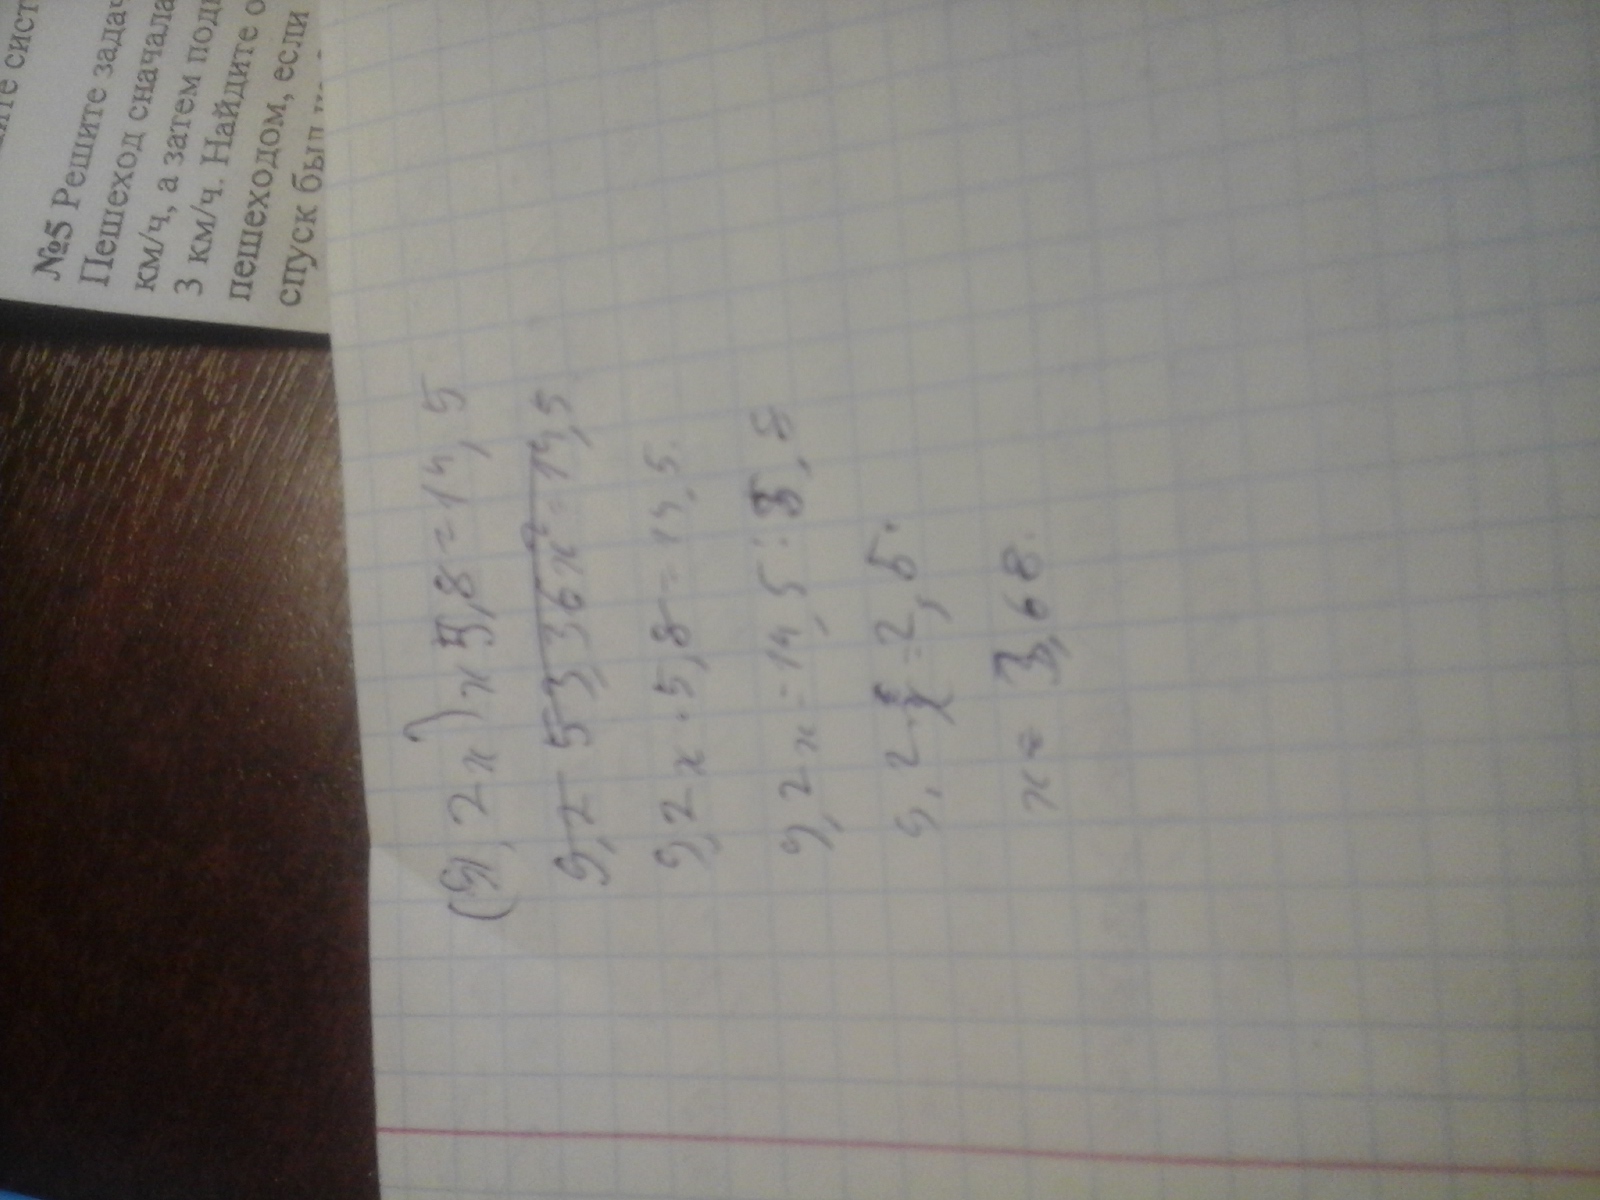 ите сист
№5 Решите задач
Пешеход сначала
км/ч, а затем подн
3 км/ч. Найдите о
пешеходом, если
спуск был
(9,2x) x 5,8=14,5
9,2 53,36x²=14,5
9,2x·5,8=14,5.
9,2x=14,5:5,8
9,2x=2,5.
x= 3,68.